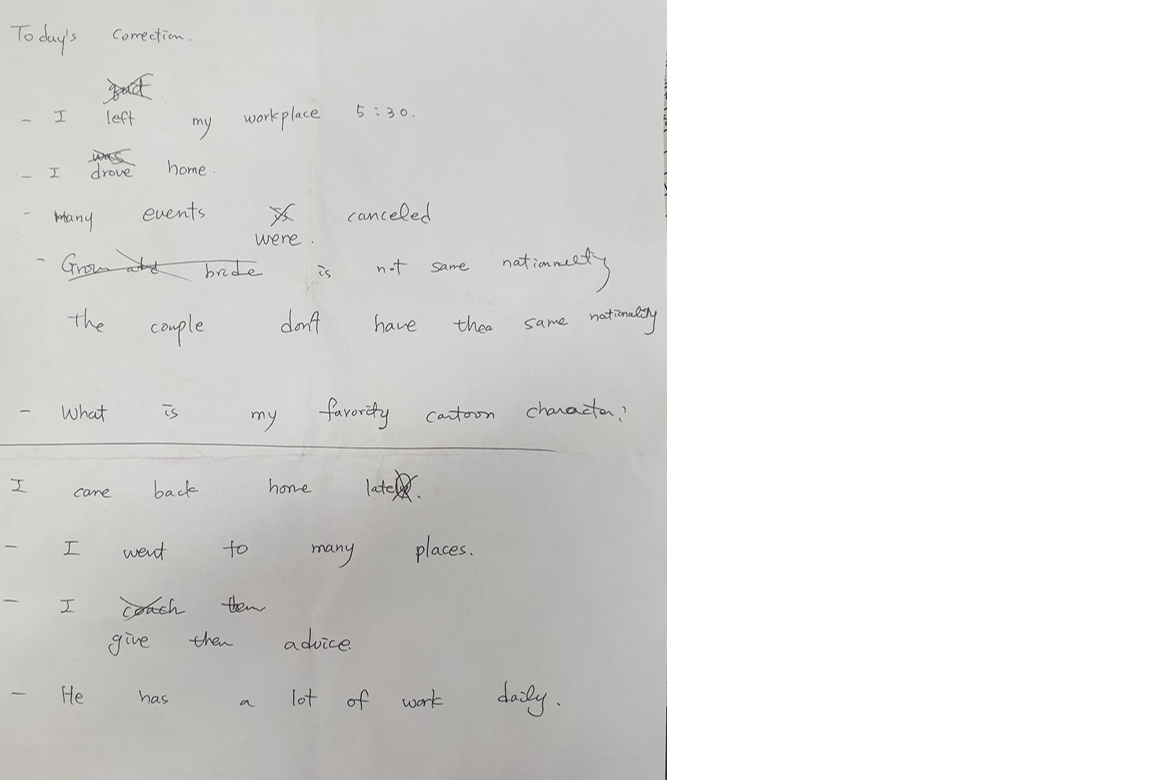 Today's Correction.
- I left my workplace 5:30.
was
- I drove home.
- Many events is canceled
were.
- Groom and bride is not same nationneety
The couple don't have the same nationality
- What is my favority cartoon character?
I came back home late.
- I went to many places.
- I coach them
give them advice.
- He has a lot of work daily.